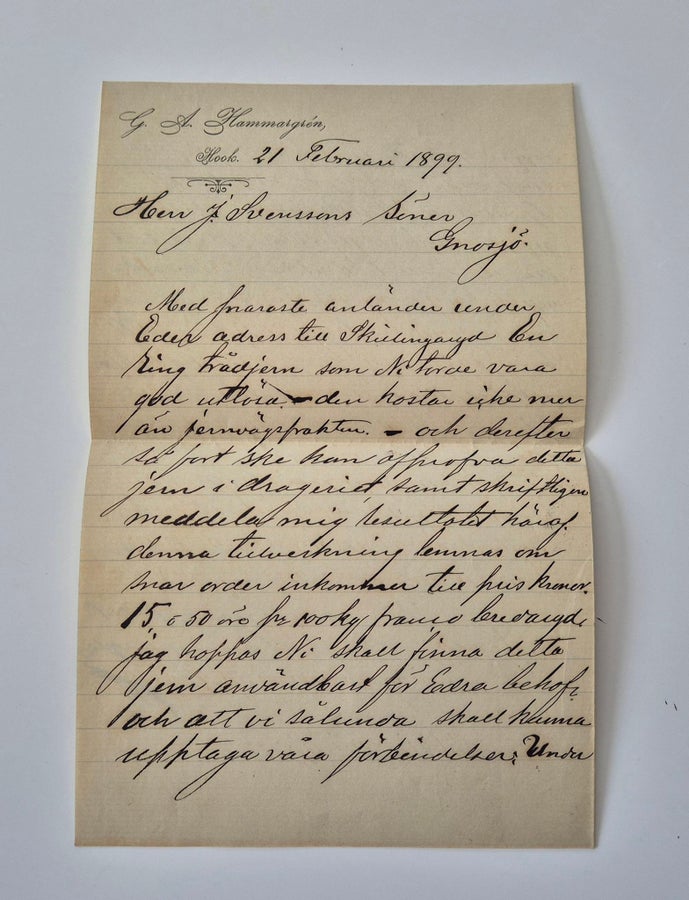 G. A. Hammargrén,
Hook. 21 Februari 1899.
Herr J. Svenssons Söner
Gnosjö.
Med snaraste anländer under
Eder adress till Skillingaryd En
Ring trådjern som Ni torde vara
god utlösa. - den kostar icke mer
än jernvägsfrakten. - och derefter
så fort ske kan afprofva detta
jern i drageriet, samt skriftligen
meddela mig resultatet häraf.
denna tillverkning lemnas om
snar order inkommer till pris kronor.
15 o 50 öre pr 100 kg franco
jag hoppas Ni skall finna detta
jern användbart för Edra behof,
och att vi sålunda skall kunna
upptaga våra förbindelser. Under